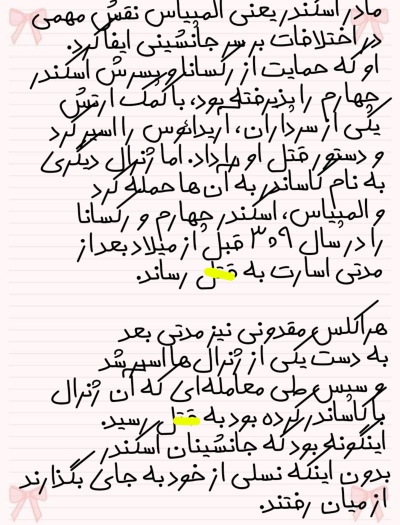 مادر اسکندر یعنی المپیاس نقش مهمی
در اختلافات بر سر جانشینی ایفا کرد.
او که حمایت از رکسانا و پسرش اسکندر
چهارم را پذیرفته بود، با کمک ارتش
یکی از سرداران، آریدائوس را اسیر کرد
و دستور قتل او را داد. اما ژنرال دیگری
به نام کاساندر به آن ها حمله کرد
و المپیاس، اسکندر چهارم و رکسانا
را در سال ۳۰۹ قبل از میلاد بعد از
مدتی اسارت به قتل رساند.
هراکلس مقدونی نیز مدتی بعد
به دست یکی از ژنرال ها اسیر شد
و سپس طی معامله‌ای که آن ژنرال
با کاساندر کرده بود به قتل رسید.
اینگونه بود که جانشینان اسکندر
بدون اینکه نسلی از خود به جای بگذارند
از میان رفتند.